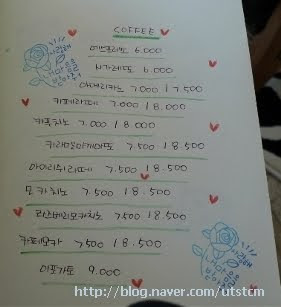 COFFEE
에스프레소 6.000
사케라또 6.000
아메리카노 7.000 17.500
카페라떼 7.000 18.000
카푸치노 7.500 18.000
카라멜마끼아또 7.500 18.500
아이리쉬라떼 7.500 18.500
모카치노 7.500 18.500
라즈베리모카치노 7.500 18.500
카페모카 7.500 18.500
아포가토 9.000
http://blog.naver.com/utstcm